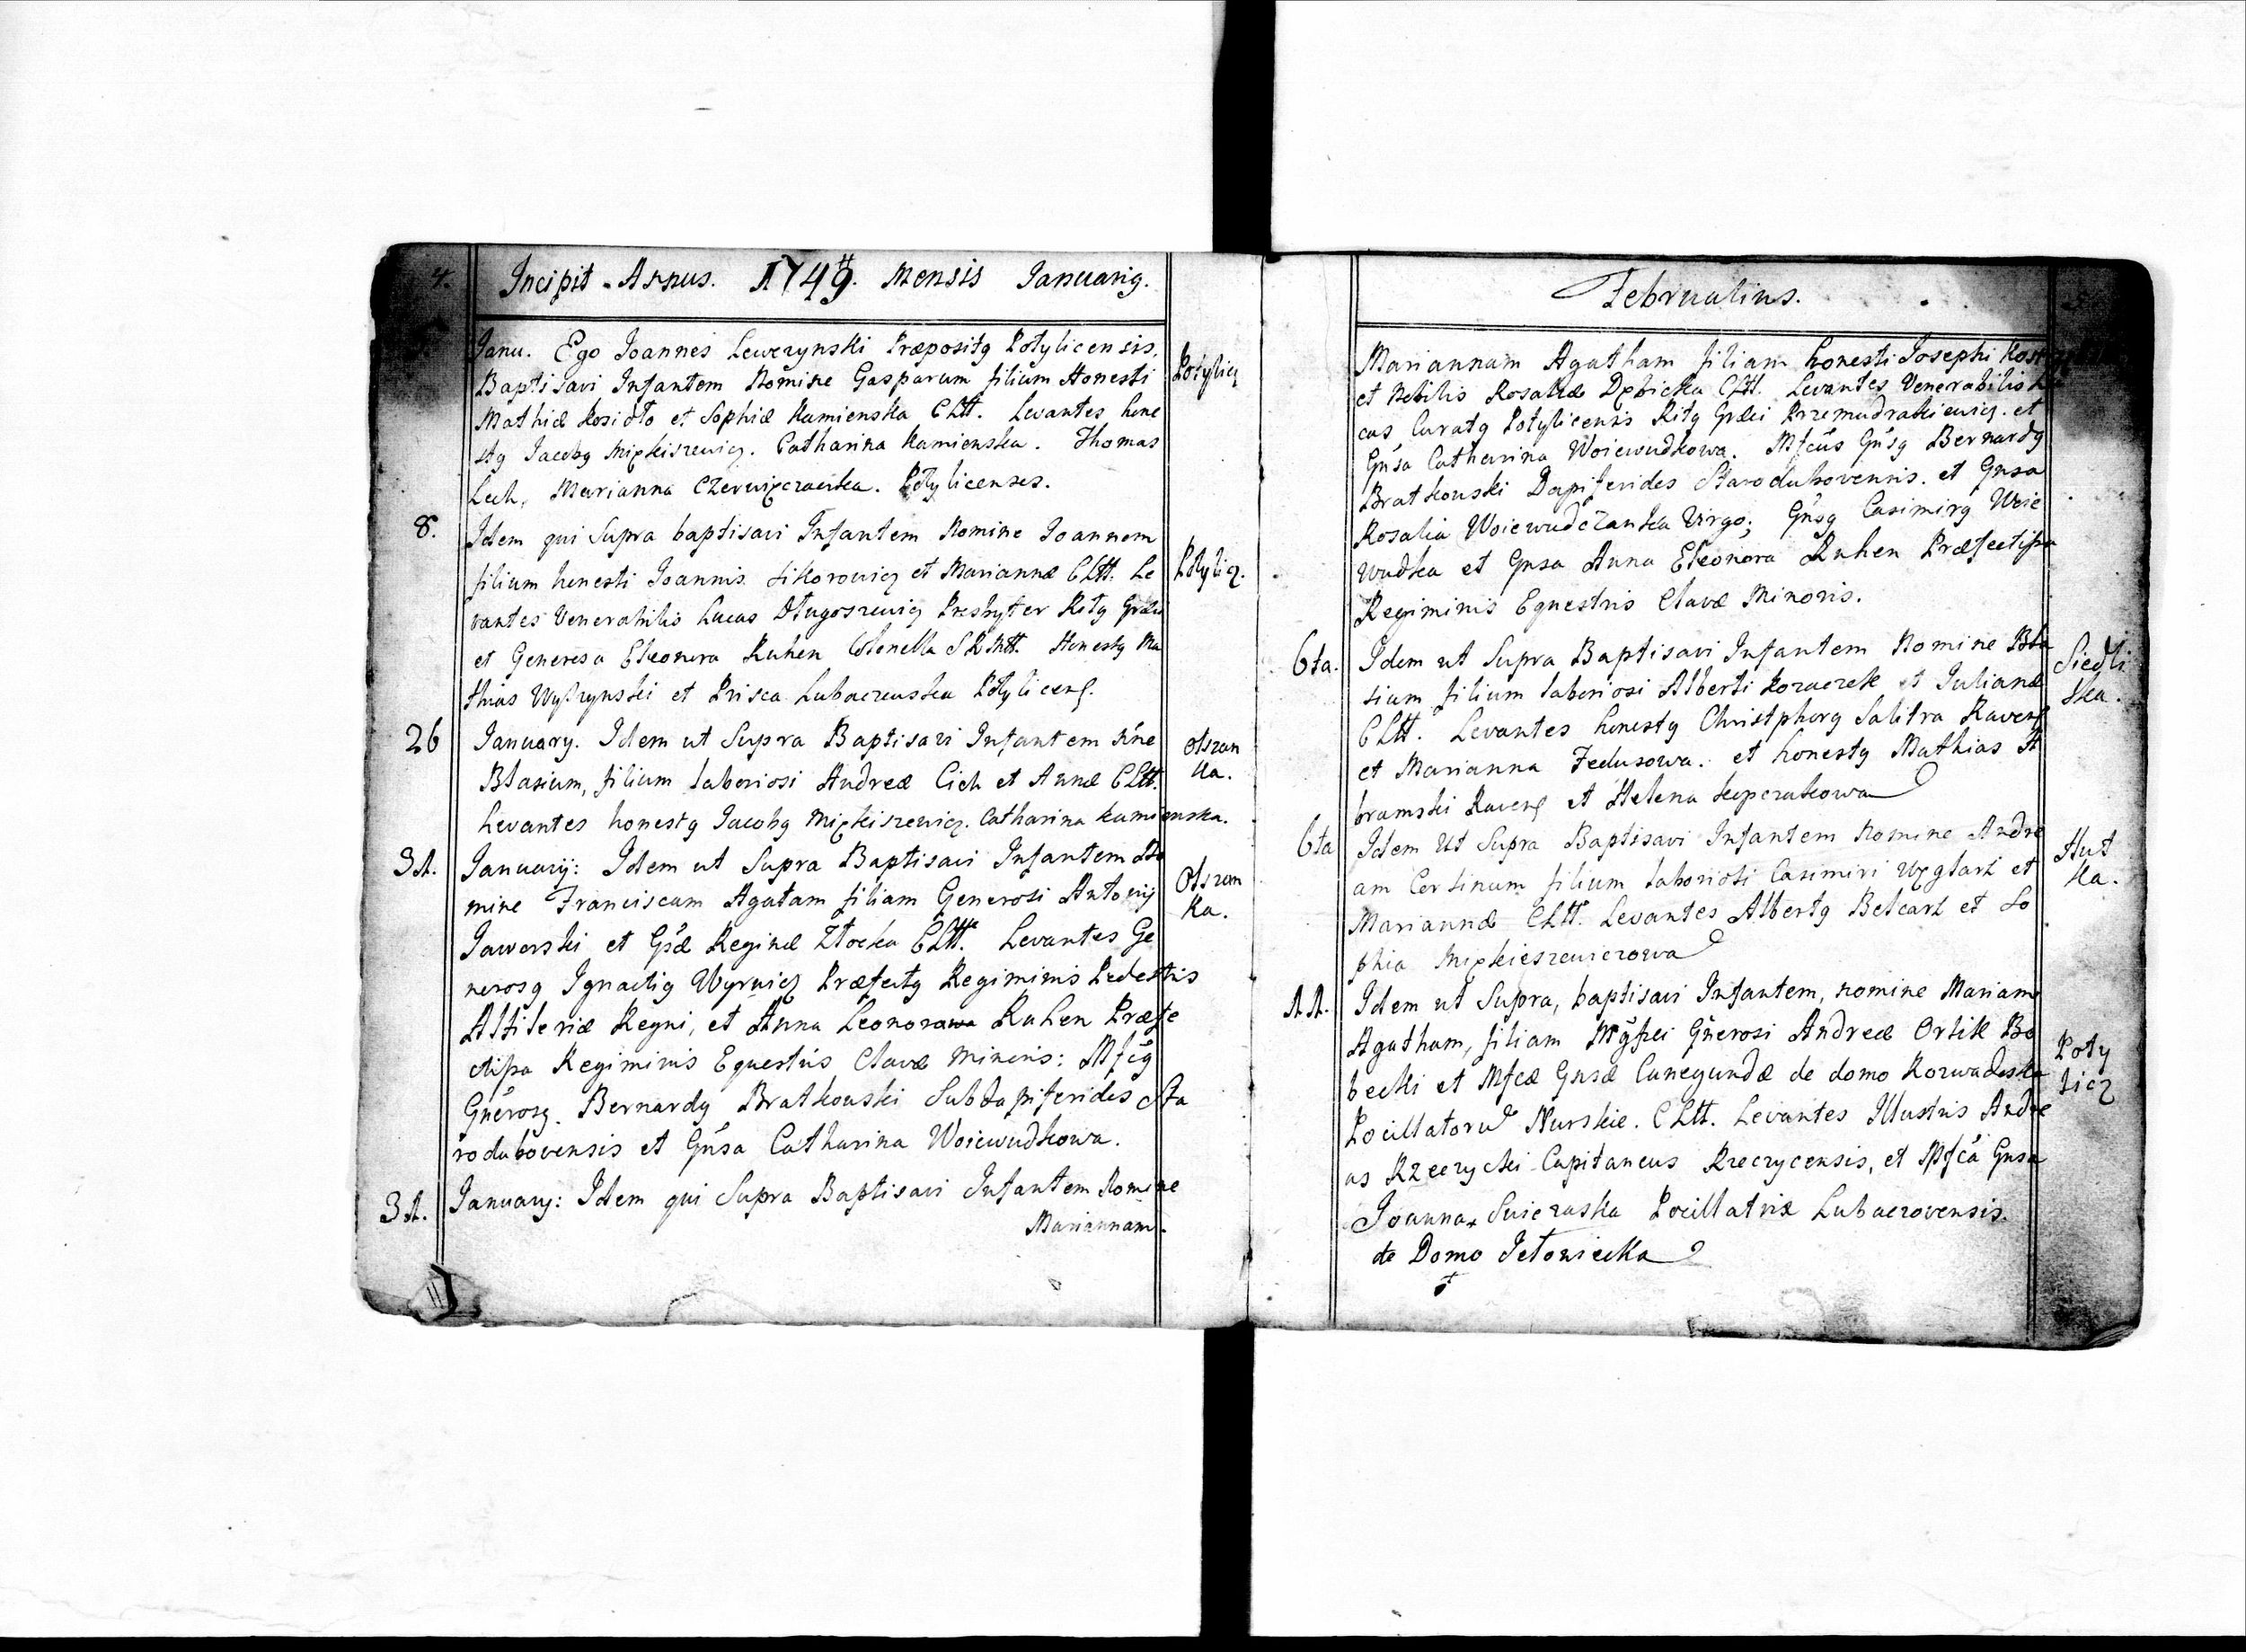 4.
Incipit Annus. 1749. Mensis Januarij.
5.
Janu. Ego Joannes Lewczynski Præpositg Potylicensis.
Baptisavi Infantem Nomine Gasparum filium Honesti
Potylicz
Mathiæ Kosioło et Sophiæ Kamienska CLtt. Levantes hone
stg Jacobg Miękiszewicz. Catharina Kamienska. Thomas
Lech, Marianna Czerwięczaeska. Potylicenses.
8.
Idem qui Supra baptisavi Infantem Nomine Joannem
filium honesti Joannis Sikorowicz et Mariannæ CLtt. Le
Potylicz.
vantes Venerabilis Lucas Długoszewicz Presbyter Ritg Græci
et Generosa Eleonora Ruhen Colonella SRMtt. Honestg Ma
thias Wyszynski et Prisca Lubaczewska Potylicens.
26
January. Idem ut Supra Baptisavi Infantem Nne
Olszan
Blasium, filium laboriosi Andreæ Cich et Annæ CLtt.
ka.
Levantes honestg Jacobg Miękiszewicz. Catharina Kamienska.
31.
Januarij: Idem ut Supra Baptisavi Infantem No
mine Franciscam Agatam filiam Generosi Antonij
Olszan
ka.
Jaworski et Gsæ Reginæ Złocka CLtt. Levantes Ge
nerosg Ignatig Wyrwicz Præfectg Regiminis Pedestris
Altileriæ Regni, et Anna Leonorawa Ruhen Præfe
ctissa Regiminis Equestris Clavæ Minoris: Mfcg
Gnerosg. Bernardg Bratkowski Subdapiferides Sta
rodubovensis et Gnsa Catharina Woiewudkowa.
31.
January: Idem qui Supra Baptisavi Infantem Nomine
Mariannam.
11
Februarius.
Mariannam Agatham filiam honesti Josephi
et Nobilis Rosaliæ Dębicka CLtt. Levantes Venerabilis Lu
cas Curatg Potylicensis Ritg Græci Przemudrakiewicz. et
Gnsa Catharina Woiewudkowa. Mfcus Gnsg Bernardg
Bratkowski Dapiferides Starodubovensis. et Gnsa
Rosalia Woiewudczanka Virgo; Gnsg Casimirg Woie
wudka et Gnsa Anna Eleonora Ruhen Præfectissa
Regiminis Equestris Clavæ Minoris.
6ta.
Idem ut Supra Baptisavi Infantem Nomine Bla
Siedli
sium filium laboriosi Alberti Kozaczek et Julianæ
ska.
CLtt. Levantes honestg Christphorg Salitra Ravens
et Marianna Fedusowa. et honestg Mathias A
bramski Ravens et Helena Kupczakowa
6ta
Idem Ut Supra Baptisavi Infantem Nomine Andre
Hut
am Corsinum filium laboriosi Casimiri Węglarz et
ka.
Mariannæ CLtt. Levantes Albertg Belcarz et So
phia Miękieszewiczowa
11.
Idem ut Supra, baptisavi Infantem, nomine Mariam
Agatham, filiam Mgfici Gnerosi Andreæ Orlik Bo
Poty
becki et Mfcæ Gnsæ Cunegundæ de domo Rozwadoska
licz
Pocillatoru Nurskie. CLtt. Levantes Illustris Andre
as Rzeczycki Capitaneus Rzeczycensis, et Mfca Gnsa
Joanna Suieraska Pocillatrix Lubaczovensis.
de Domo Jełowiecka